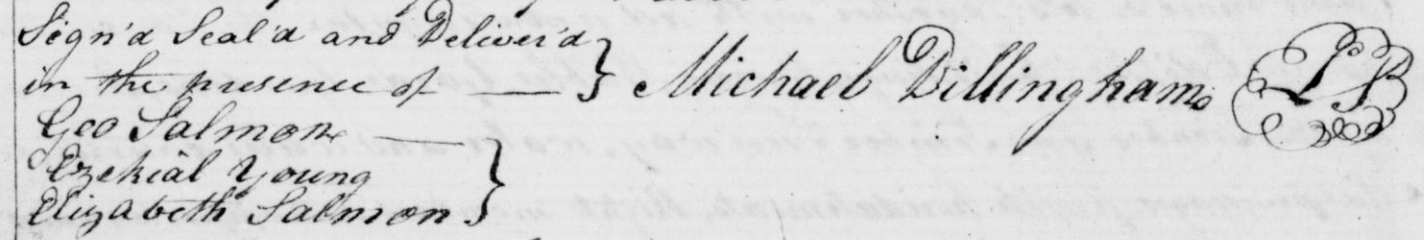 Sign'd Seal'd and Deliver'd
in the presence of ——— } Michael Dillingham
Geo Salmon ———
Ezekial Young
Elizabeth Salmon }